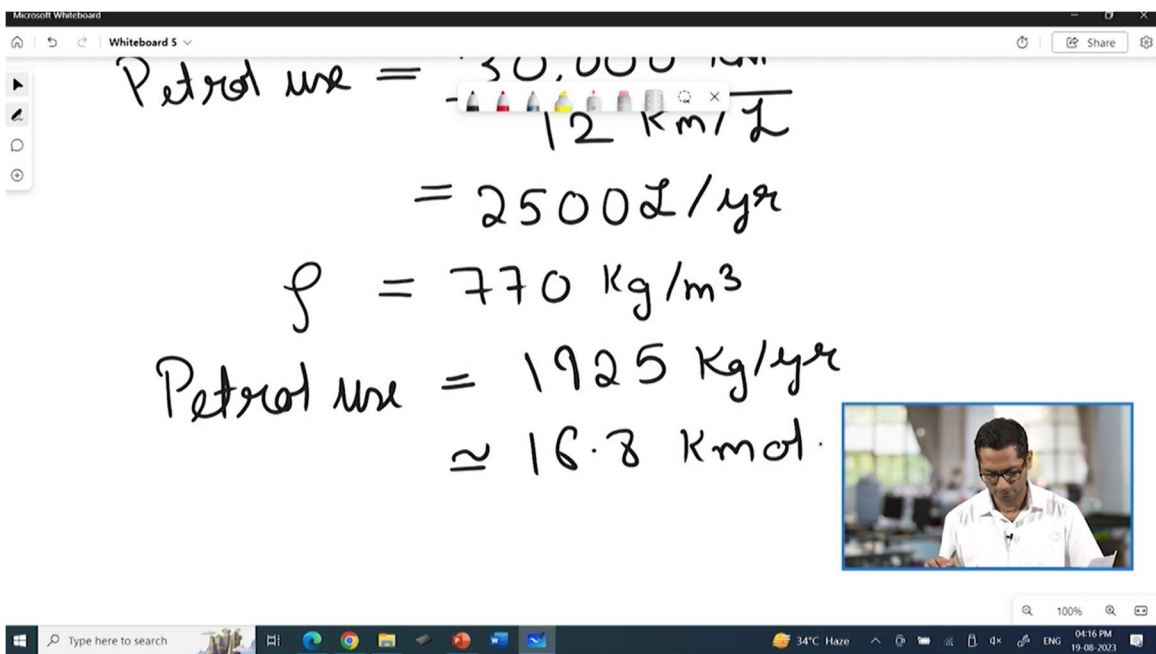 Microsoft Whiteboard
Whiteboard 5
Share
Petrol use = 30,000 km
12 Km/L
= 2500L/yr
ρ = 770 Kg/m3
Petrol use = 1925 Kg/yr
≃ 16.8 Kmol.
100%
Type here to search
34°C Haze
ENG
04:16 PM
19-08-2023